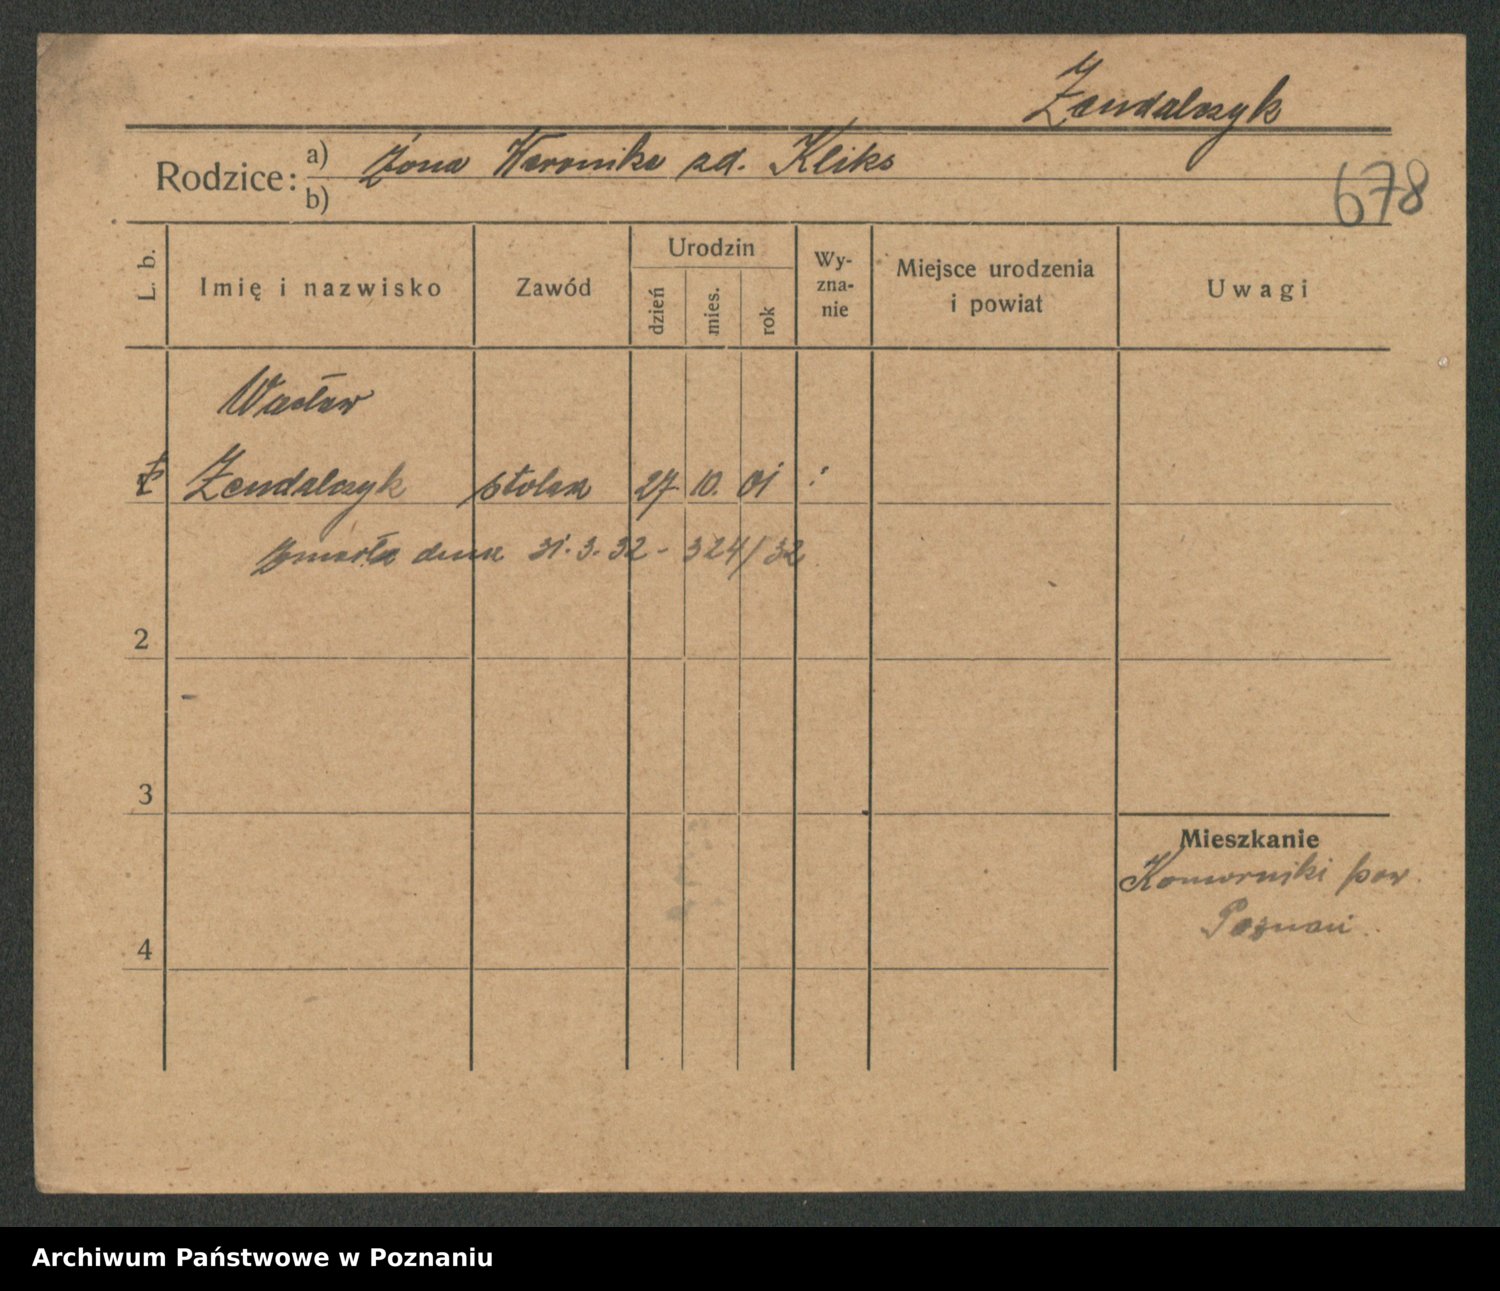 Żendalczyk
Rodzice: a) Żona Weronika zd. Kliks
b)
678
L. b.
Imię i nazwisko
Zawód
Urodzin
dzień
mies.
rok
Wy-
zna-
nie
Miejsce urodzenia
i powiat
Uwagi
Wacław
Żendalczyk stolarz 27. 10. 01
Zmarła dnia 31.3.32 - 324/32
2
3
Mieszkanie
Komorniki pow.
Poznań
4
Archiwum Państwowe w Poznaniu